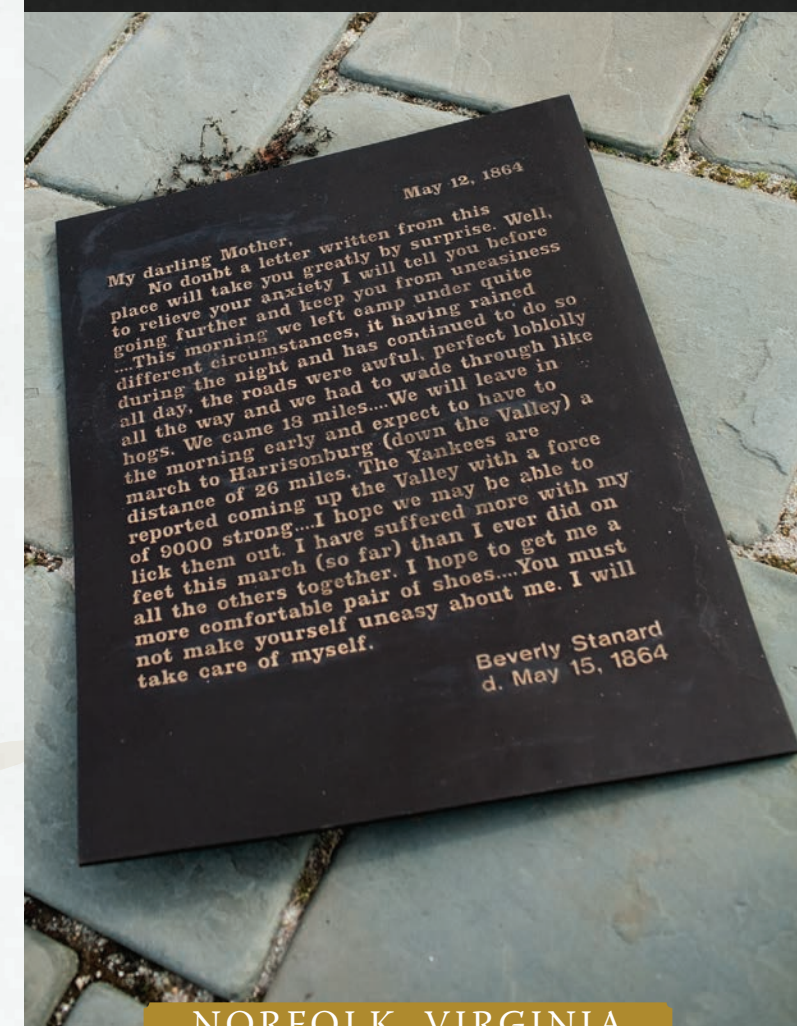 May 12, 1864
My darling Mother,
No doubt a letter written from this
place will take you greatly by surprise. Well,
to relieve your anxiety I will tell you before
going further and keep you from uneasiness
....This morning we left camp under quite
different circumstances, it having rained
during the night and has continued to do so
all day, the roads were awful, perfect loblolly
all the way and we had to wade through like
hogs. We came 18 miles....We will leave in
the morning early and expect to have to
march to Harrisonburg (down the Valley) a
distance of 26 miles. The Yankees are
reported coming up the Valley with a force
of 9000 strong....I hope we may be able to
lick them out. I have suffered more with my
feet this march (so far) than I ever did on
all the others together. I hope to get me a
more comfortable pair of shoes....You must
not make yourself uneasy about me. I will
take care of myself.
Beverly Stanard
d. May 15, 1864
NORFOLK, VIRGINIA